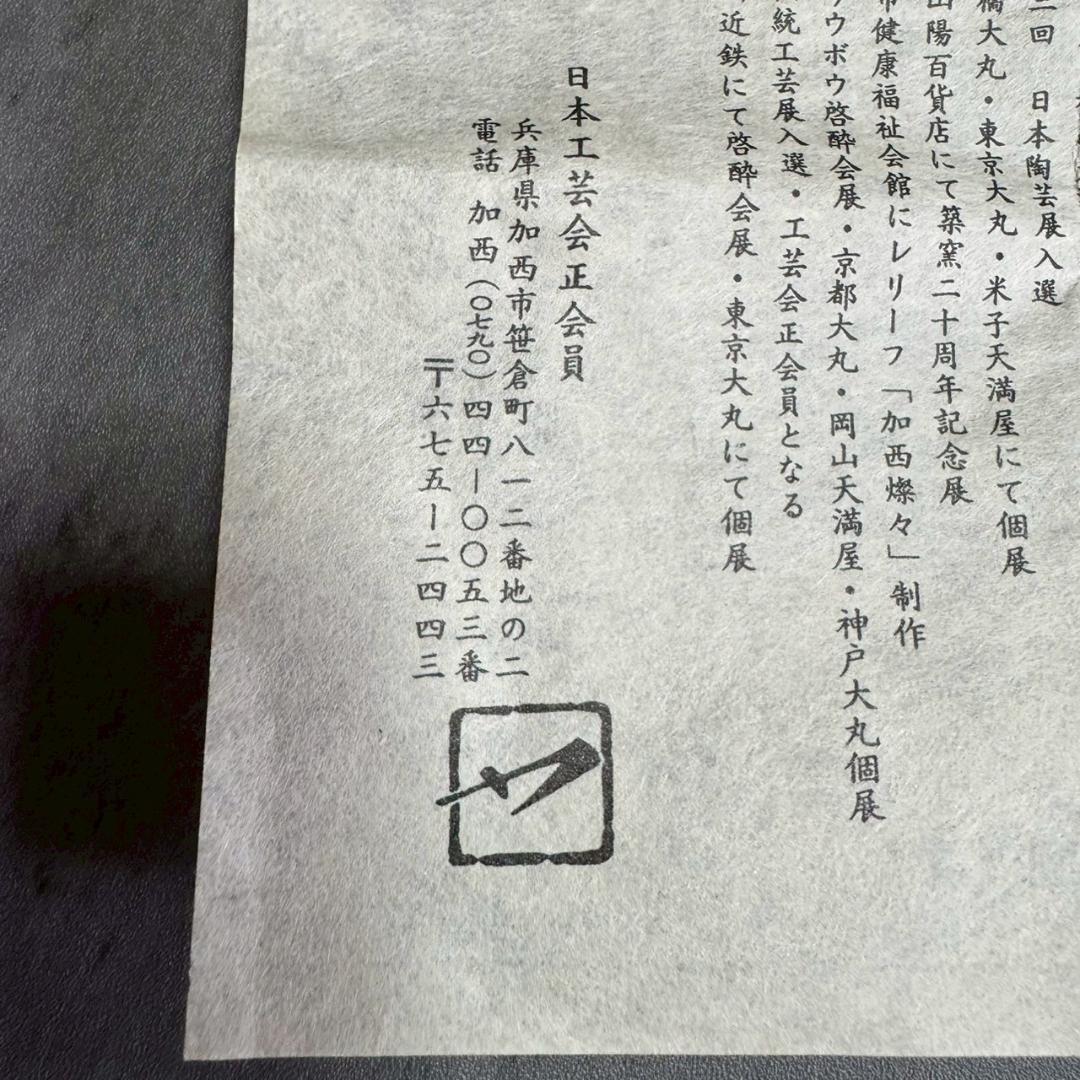 二回 日本陶芸展入選
橋大丸・東京大丸・米子天満屋にて個展
山陽百貨店にて築窯二十周年記念展
市健康福祉会館にレリーフ「加西燦々」制作
ウボウ啓酔会展・京都大丸・岡山天満屋・神戸大丸個展
統工芸展入選・工芸会正会員となる
近鉄にて啓酔会展・東京大丸にて個展
日本工芸会正会員
兵庫県加西市笹倉町八一二番地の二
電話 加西(〇七九〇)四四ー〇〇五三番
〒六七五ー二四四三